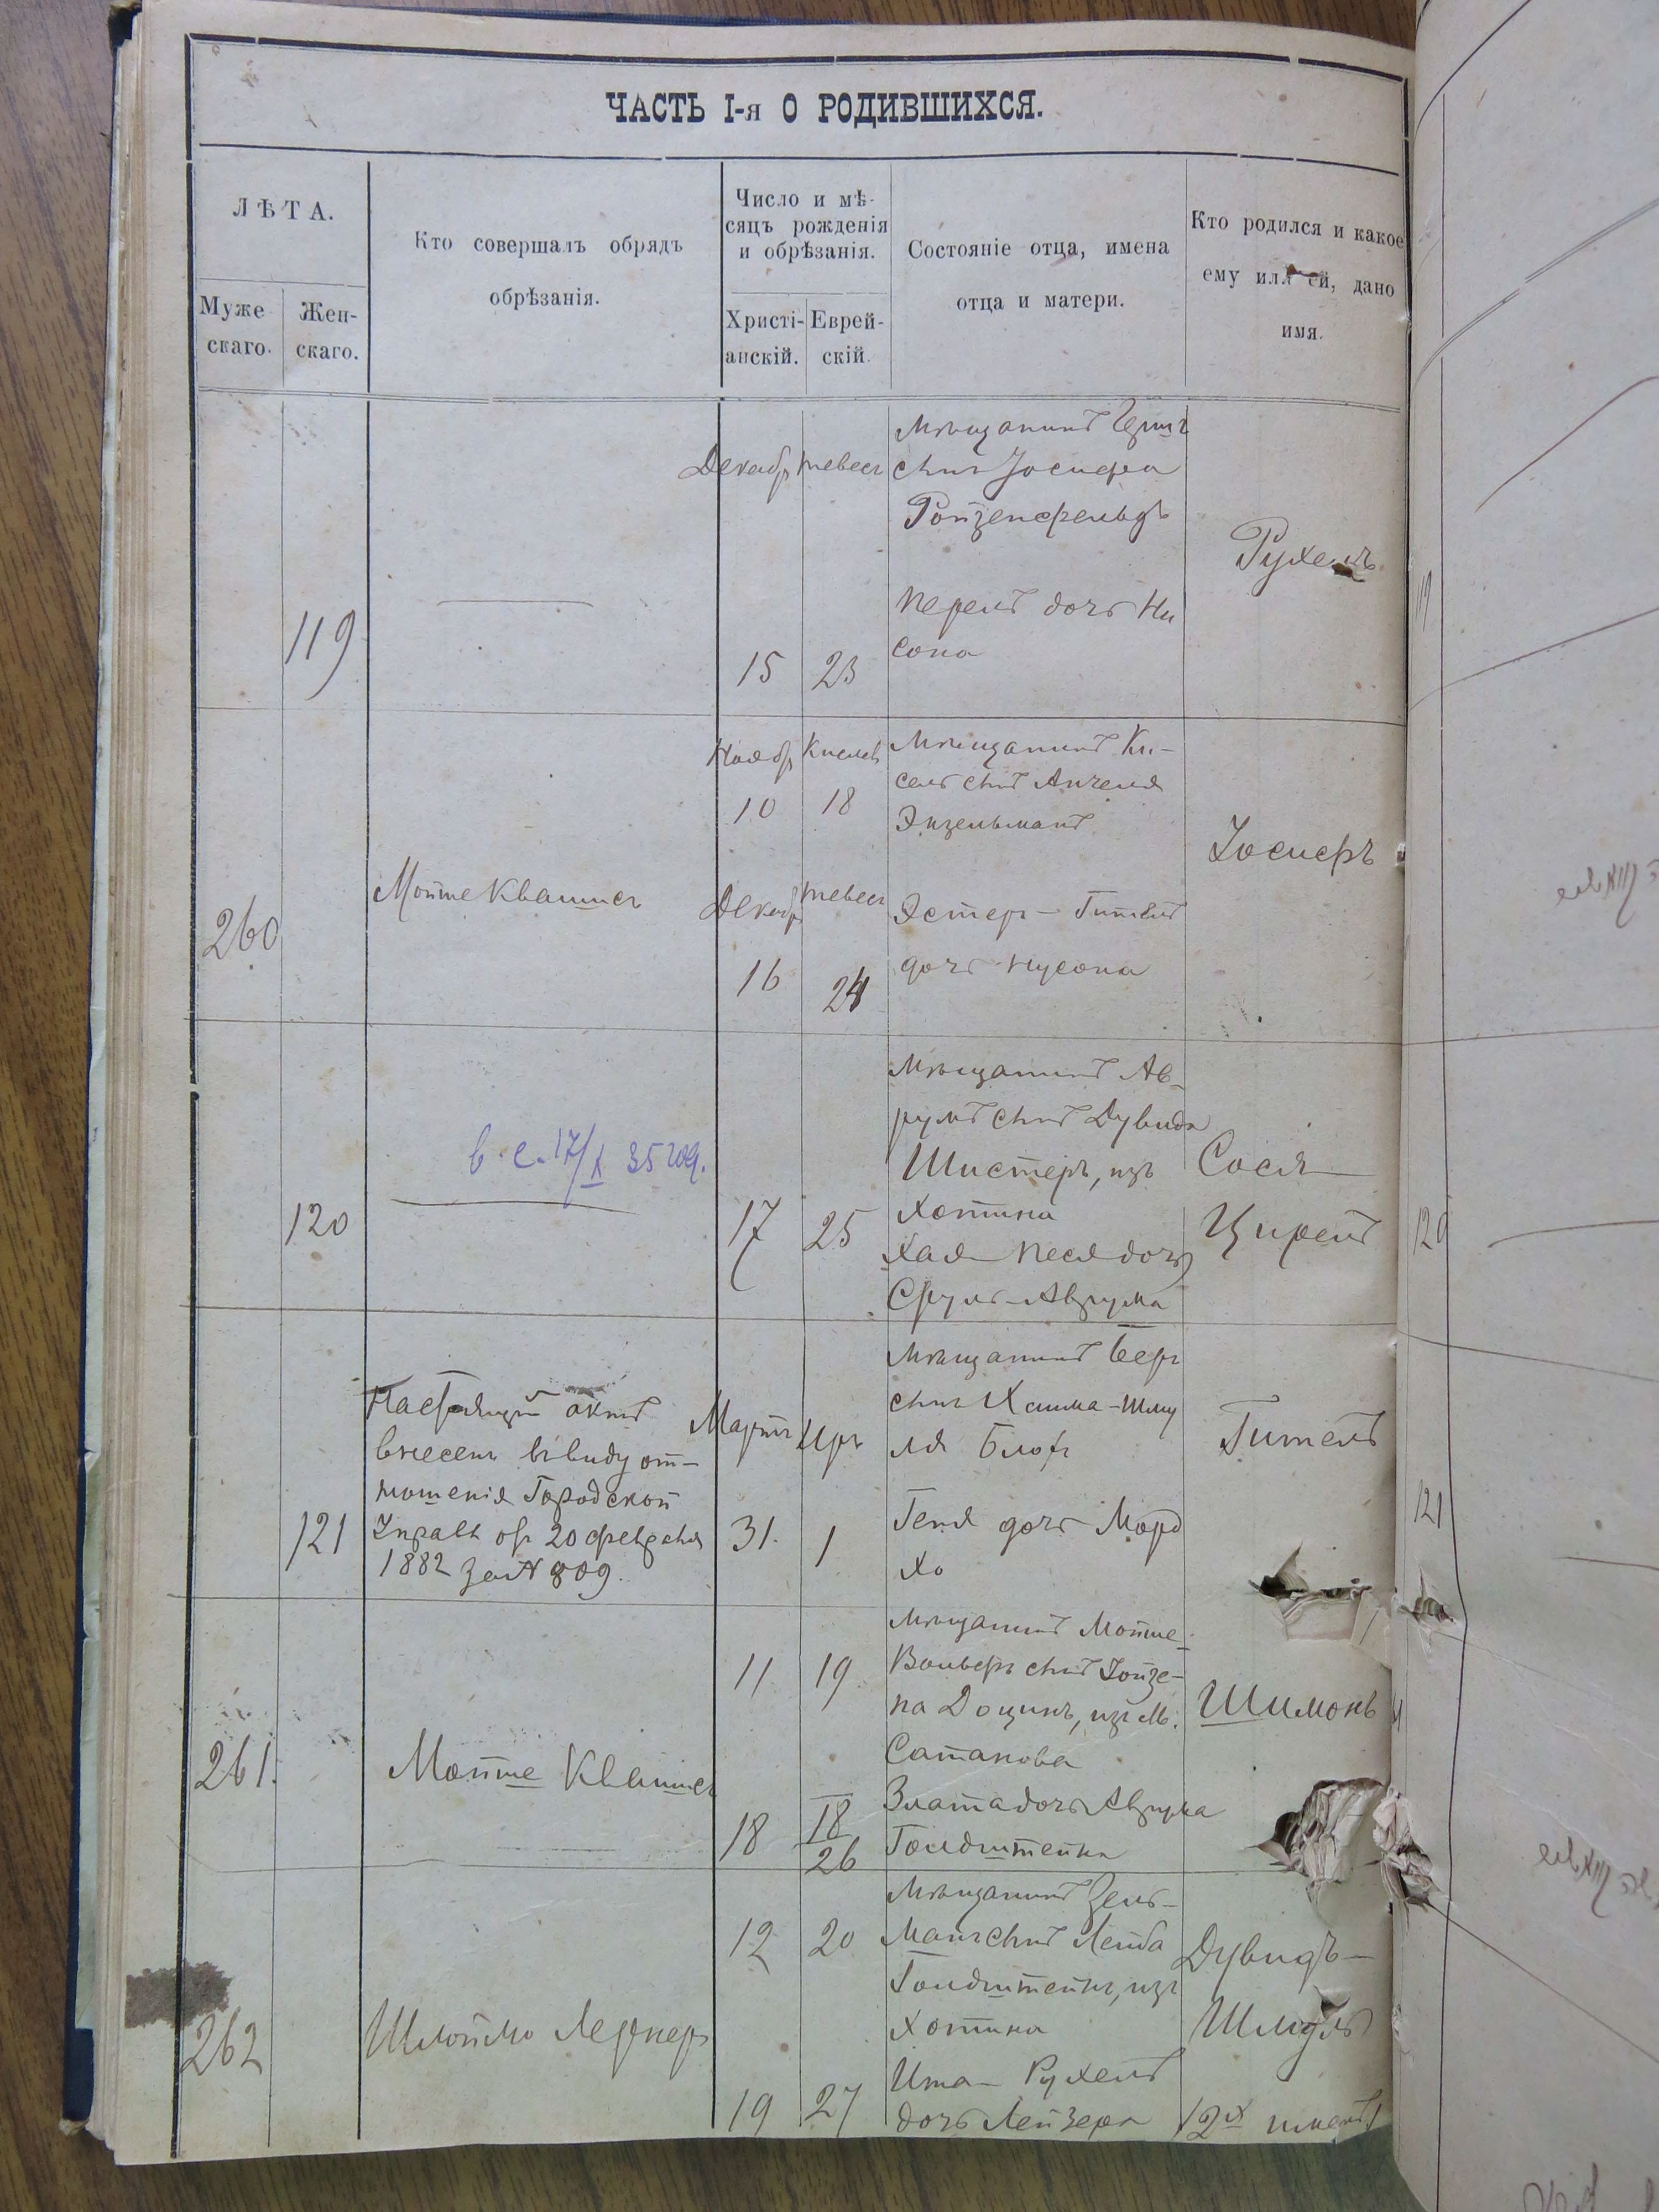 ЧАСТЬ I-я О РОДИВШИХСЯ.
ЛѢТА.
Муже
скаго.
Жен-
скаго.
Кто совершалъ обрядъ
обрѣзанія.
Число и мѣ-
сяцъ рожденія
и обрѣзанія.
Христі-
анскій.
Еврей-
скій.
Состояніе отца, имена
отца и матери.
Кто родился и какое
ему или ей, дано
имя.
119
Декабр
15
тевесъ
23
Мѣщанинъ
сынъ Іосифа
Ройзенфельдъ
Перель дочь Ни
сона
Рухель
260
Мойше Квашисъ
Ноябр
10
Декабр
16
Кислев
18
тевесъ
24
Мѣщанинъ Ки-
сель сынъ Анчеля
Энзельманъ
Эстеръ-Гитель
дочь Нусона
Іосифъ
120
в. с. 17/X 35 год.
17
25
Мѣщанинъ Ав-
румъ сынъ Дувида
Шистеръ, изъ
Хотина
Хая Песя дочь
Сруль-Аврума
Сося
Цирель
120
121
Настоящій актъ
внесенъ въ виду от-
ношенія Городской
Управы отъ 20 февраля
1882 за № 809.
Мартъ
31.
Иръ
1
Мѣщанинъ Беръ
сынъ Хаима-Шму
ля Блох
Геня дочь Морд
хо
Гитель
121
261.
Мойше Квашисъ
11
18
19
18
26
Мѣщанинъ Мойше-
Вольфъ сынъ Іойзе-
па Доцинъ, изъ м.
Сатанова
Злата дочь Аврума
Голдштейна
Шимонъ
262
Шлоймо Лернеръ
12
19
20
27
Мѣщанинъ Зель-
манъ сынъ Лейба
Голдштейнъ, изъ
Хотина
Ита-Рухель
дочь Лейзера
Дувидъ-
Шмуль
/2х именъ/